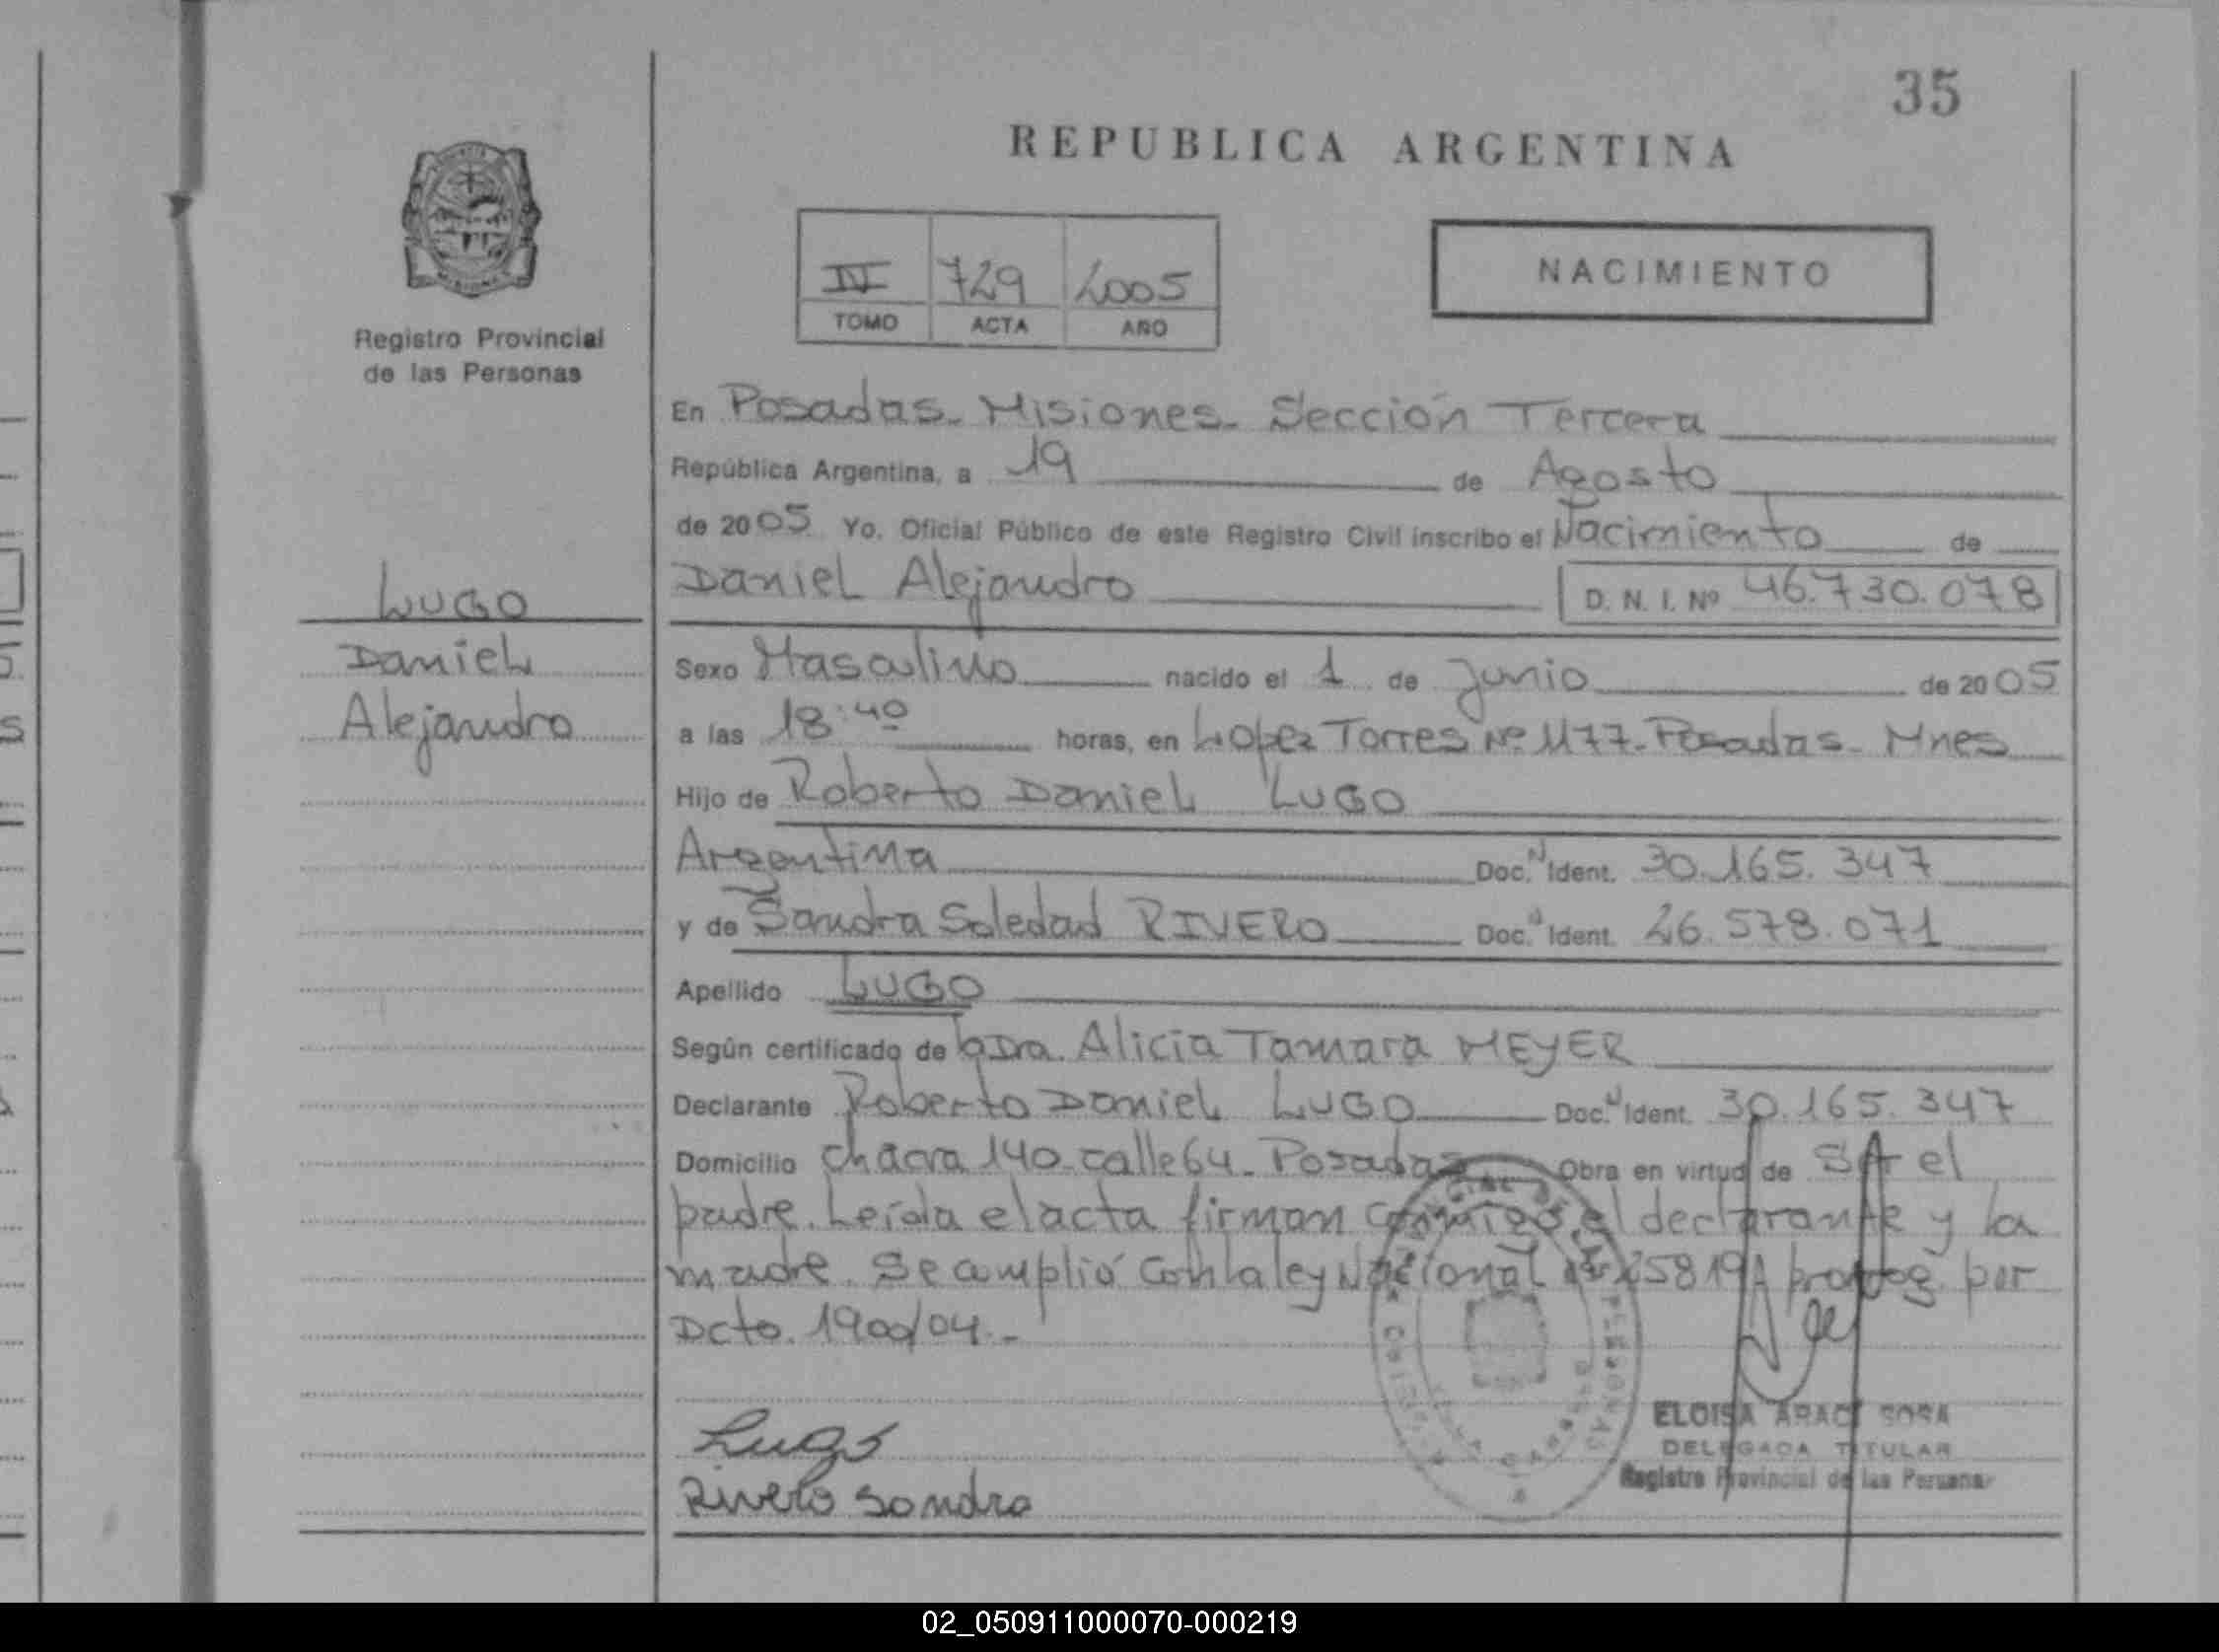 35
REPUBLICA ARGENTINA
IV 729 2005
TOMO ACTA AÑO
NACIMIENTO
Registro Provincial
de las Personas
LUGO
Daniel
Alejandro
En Posadas - Misiones - Sección Tercera
República Argentina, a 19 de Agosto
de 2005 Yo, Oficial Público de este Registro Civil inscribo el Nacimiento de
Daniel Alejandro D. N. I. Nº 46.730.078
Sexo Masculino nacido el 1 de Junio de 2005
a las 18:40 horas, en Lopez Torres Nº 1177 - Posadas - Mnes
Hijo de Roberto Daniel LUGO
Argentina Doc. Ident. 30.165.347
y de Sandra Soledad RIVERO Doc. Ident. 26.578.071
Apellido LUGO
Según certificado de la Dra. Alicia Tamara MEYER
Declarante Roberto Daniel LUGO Doc. Ident. 30.165.347
Domicilio chacra 140 - calle 64 - Posadas Obra en virtud de el
padre. Leída el acta firman conmigo el declarante y la
madre. Se amplió con la ley Nacional 25819 prorrog. por
Dcto. 1900/04.-
Lugo
Rivero Sandra
ELOISA ARACI SOSA
DELEGADA TITULAR
Registro Provincial de las Personas
02_050911000070-000219